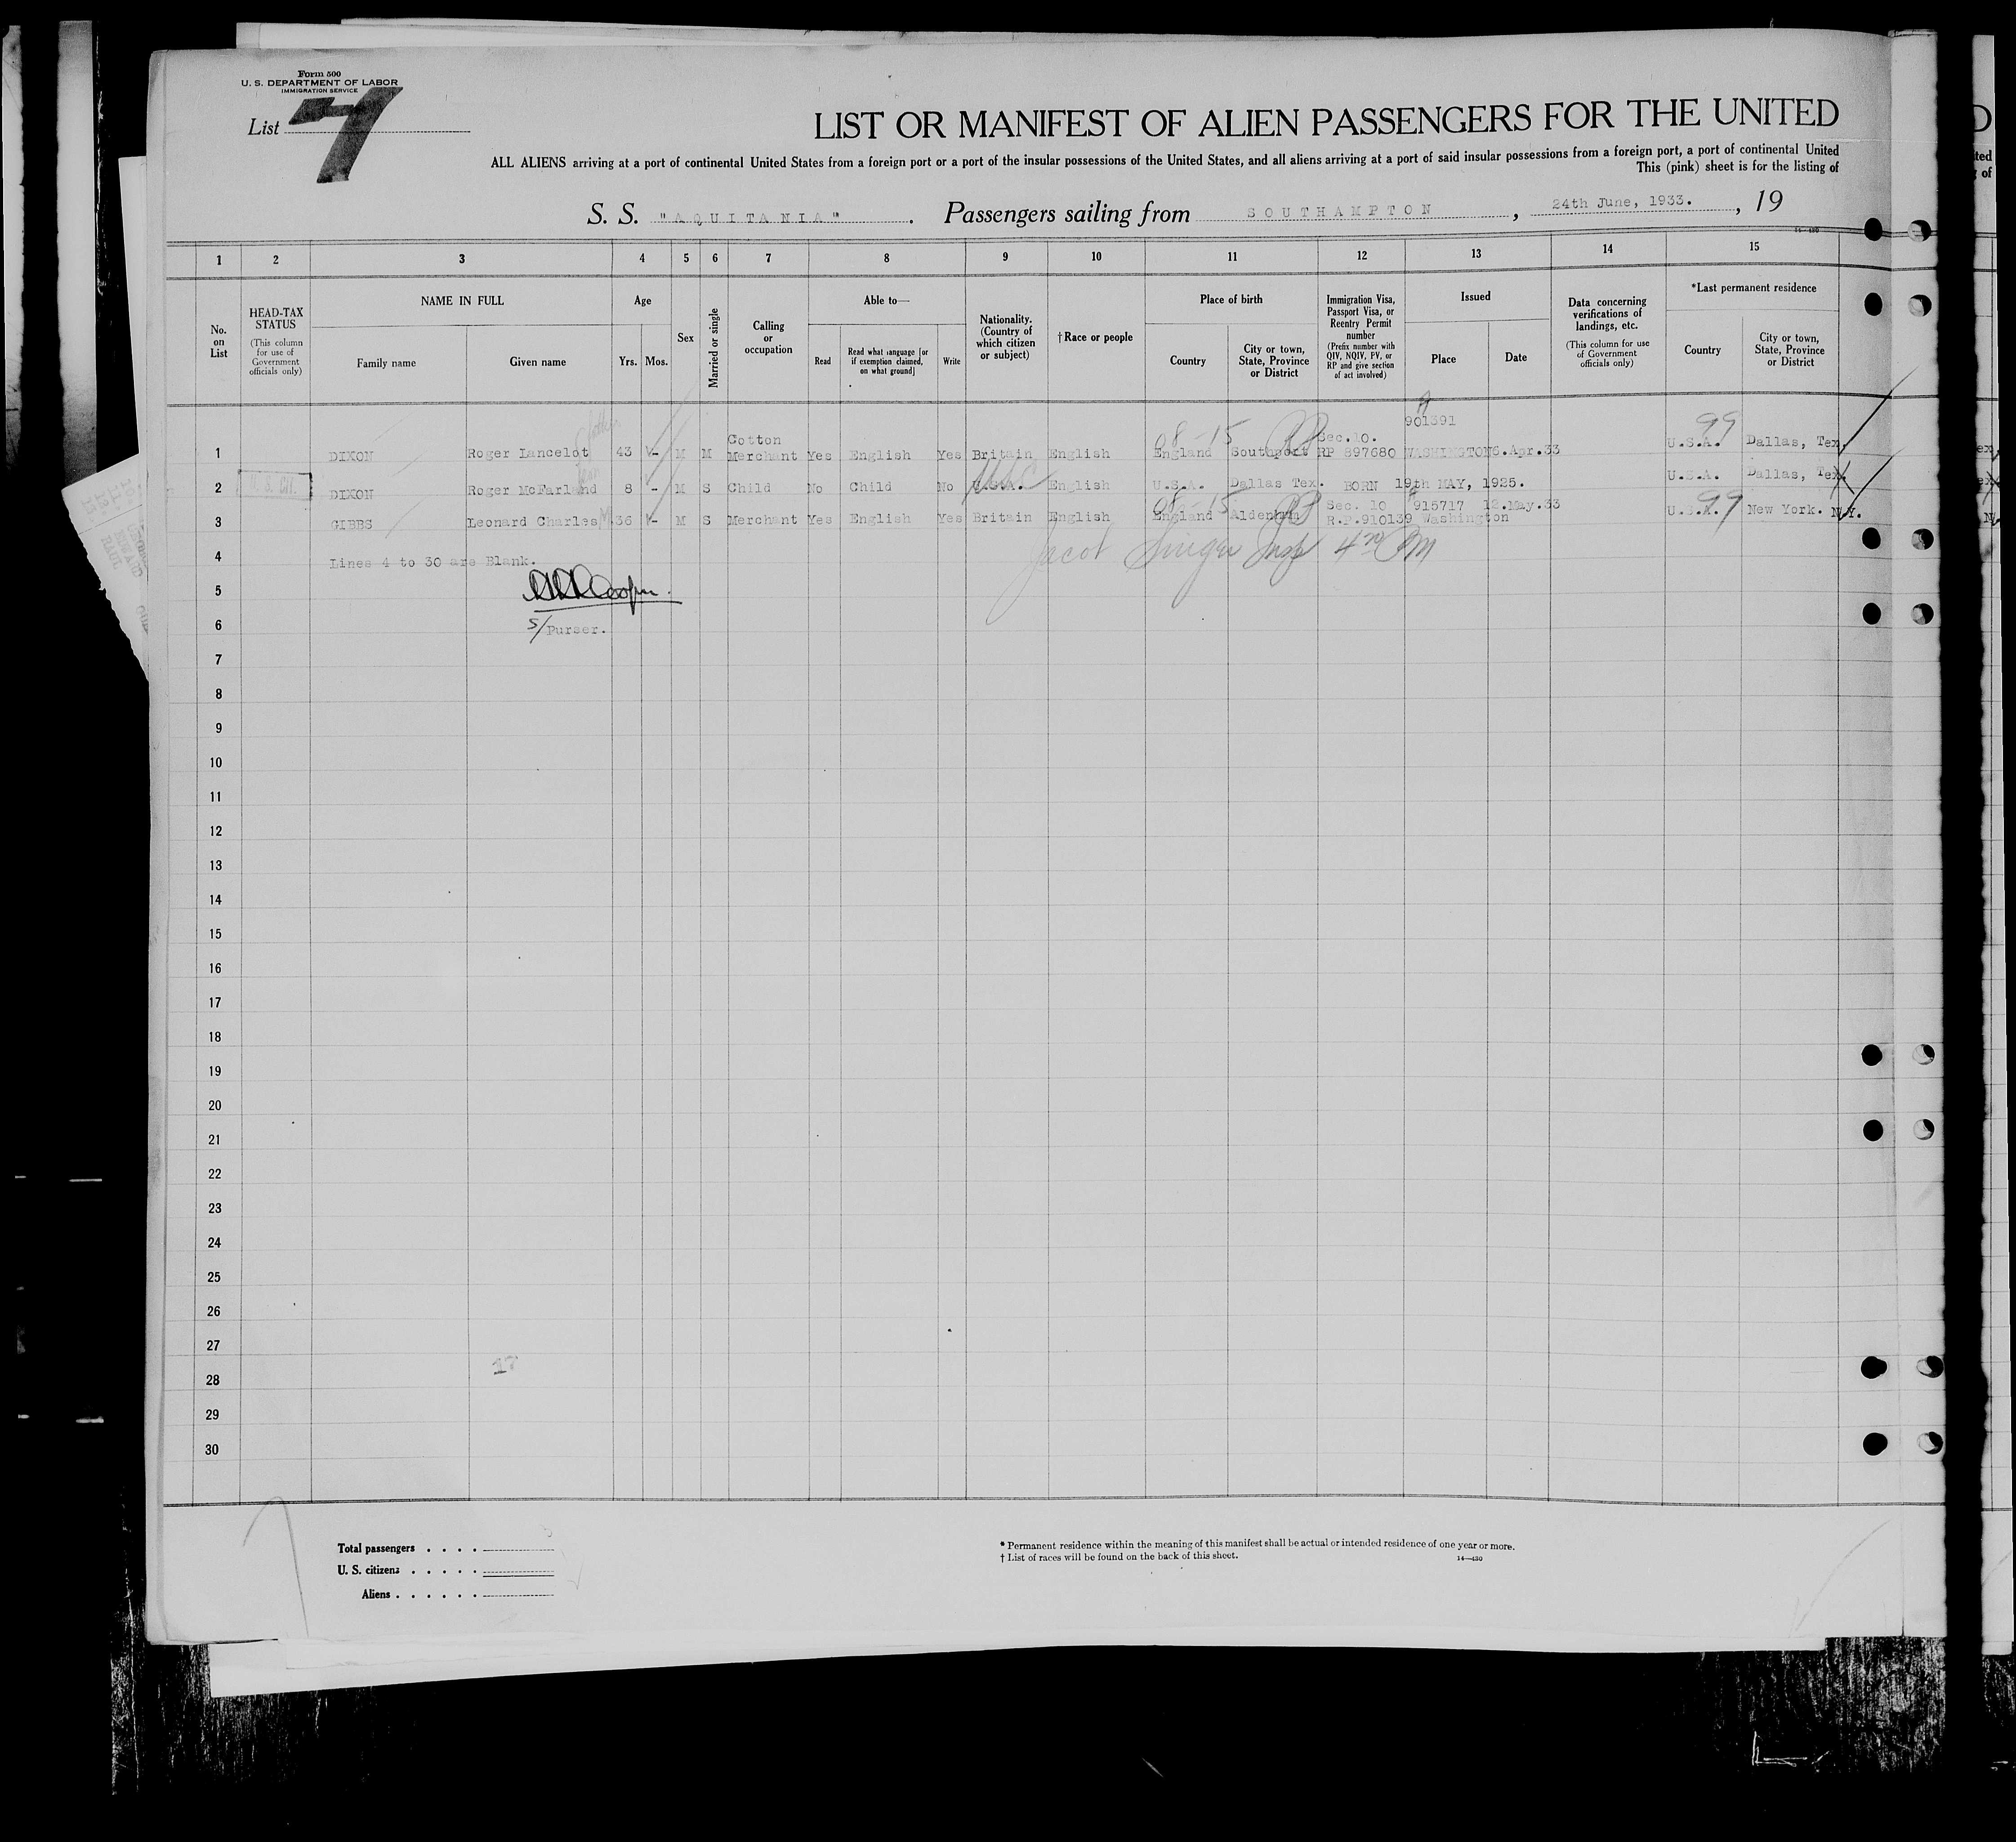 Form 500
U. S. DEPARTMENT OF LABOR
IMMIGRATION SERVICE
List 7
LIST OR MANIFEST OF ALIEN PASSENGERS FOR THE UNITED
ALL ALIENS arriving at a port of continental United States from a foreign port or a port of the insular possessions of the United States, and all aliens arriving at a port of said insular possessions from a foreign port, a port of continental United
This (pink) sheet is for the listing of
S. S. "AQUITANIA". Passengers sailing from SOUTHAMPTON, 24th June, 1933., 19
14—430
1 2 3 4 5 6 7 8 9 10 11 12 13 14 15
No. on List
HEAD-TAX STATUS
(This column for use of Government officials only)
NAME IN FULL
Family name Given name
Age
Yrs. Mos.
Sex
Married or single
Calling or occupation
Able to—
Read
Read what language [or if exemption claimed, on what ground]
Write
Nationality. (Country of which citizen or subject)
†Race or people
Place of birth
Country
City or town, State, Province or District
Immigration Visa, Passport Visa, or Reentry Permit number
(Prefix number with QIV, NQIV, PV, or RP and give section of act involved)
Issued
Place Date
Data concerning verifications of landings, etc.
(This column for use of Government officials only)
*Last permanent residence
Country
City or town, State, Province or District
A
901391
08-15 99
1 DIXON Roger Lancelot 43 - M M Cotton Merchant Yes English Yes Britain English England Southport Sec.10. RP 897680 WASHINGTON 6.Apr.33 U.S.A. Dallas, Tex.
2 U. S. Cit. DIXON Roger McFarland 8 - M S Child No Child No U.S.A. USC English U.S.A. Dallas Tex. BORN 19th MAY, 1925. U.S.A. Dallas, Tex.
08-15 99
3 GIBBS Leonard Charles 36 - M S Merchant Yes English Yes Britain English England Aldenham Sec. 10 R.P.910139 915717 Washington 12.May.33 U.S.A. New York. N.Y.
4 Lines 4 to 30 are Blank.
Jacob Singer Insp
5
6 S/Purser.
7
8
9
10
11
12
13
14
15
16
17
18
19
20
21
22
23
24
25
26
27
17
28
29
30
Total passengers . . . .
U. S. citizens . . . . .
Aliens . . . . . .
* Permanent residence within the meaning of this manifest shall be actual or intended residence of one year or more.
† List of races will be found on the back of this sheet.
14—430